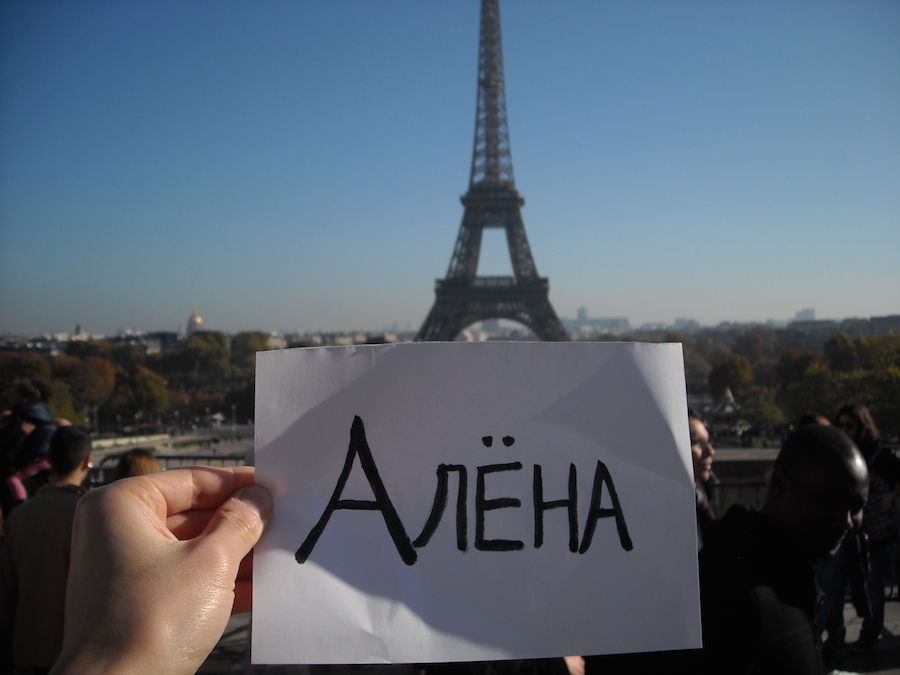 Алёна